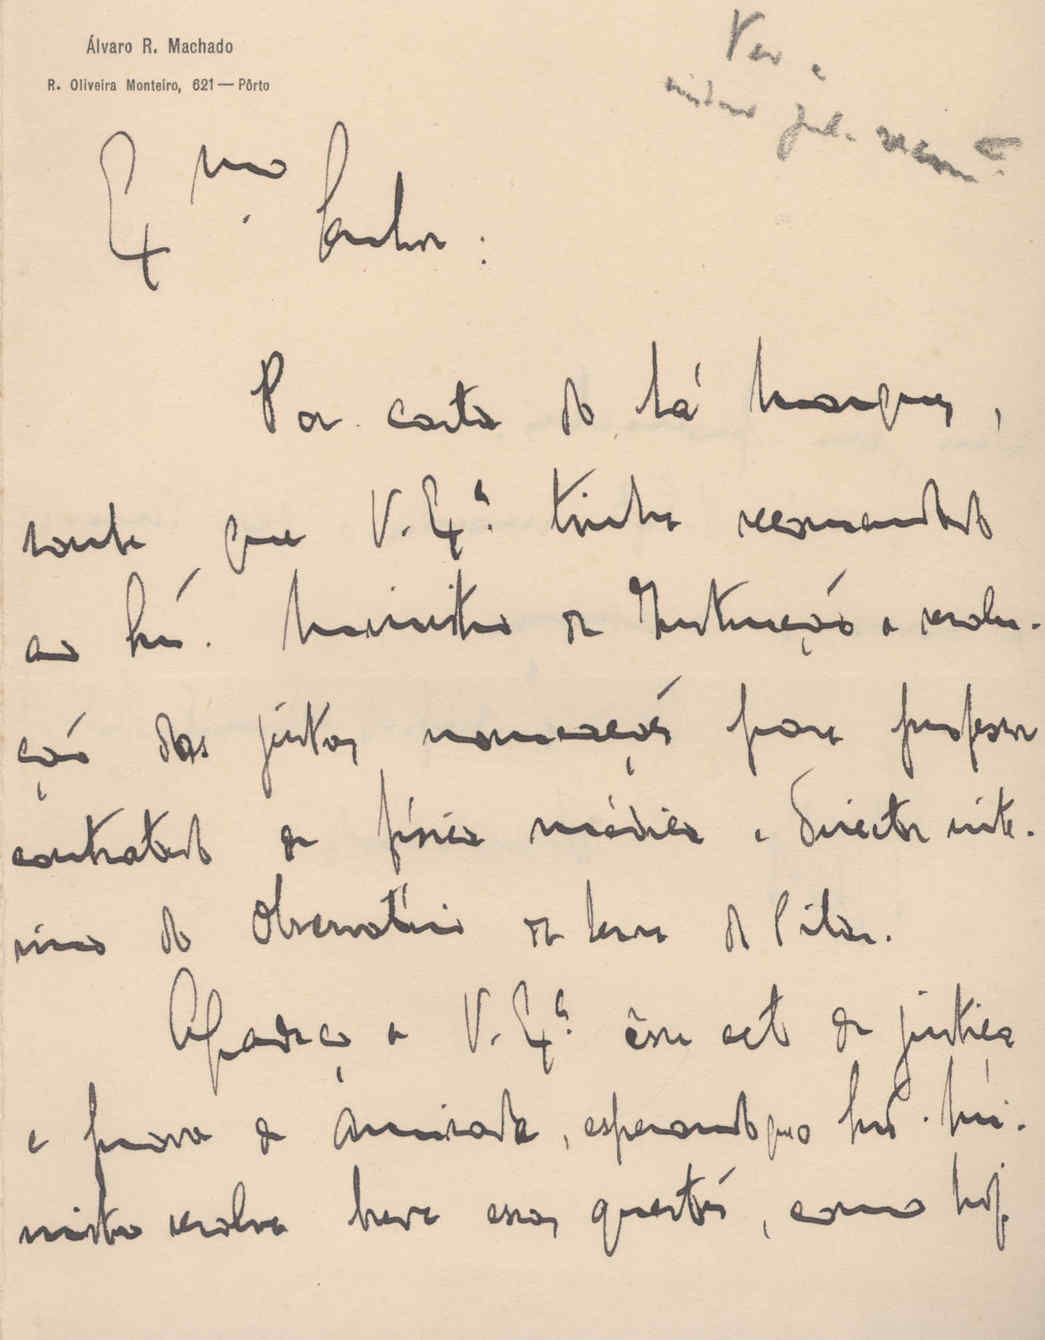 Álvaro R. Machado
R. Oliveira Monteiro, 621 — Pôrto
Ver e
Ex.mo Senhor:
Por carta do Sá Marques,
soube que V. Ex.ª tinha recomendado
ao Snr. Ministro da Instrução a resolu-
ção das justas nomeações para professor
contratado de física médica e Director inte-
rino do Observatório da Serra do Pilar.
Agradeço a V. Ex.ª êsse acto de justiça
e prova de amizade, esperando que o Snr. Mi-
nistro resolva breve essas questões, como hoj